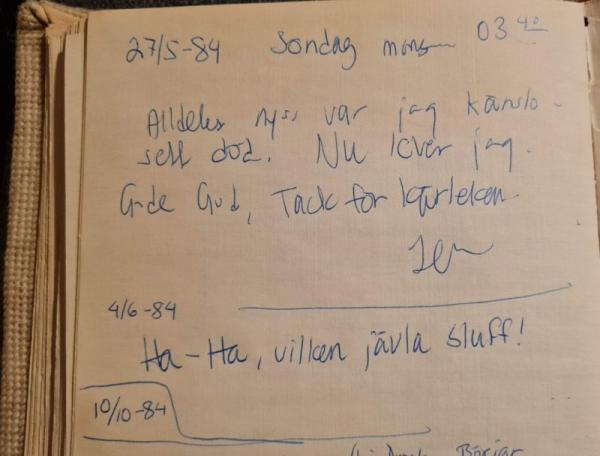 27/5-84 Söndag morgon 03 40
Alldeles nyss var jag känslo-
sell död. Nu lever jag.
Gode Gud, Tack för kärleken.
4/6-84
Ha-Ha, vilken jävla sluff!
10/10-84
Börjar